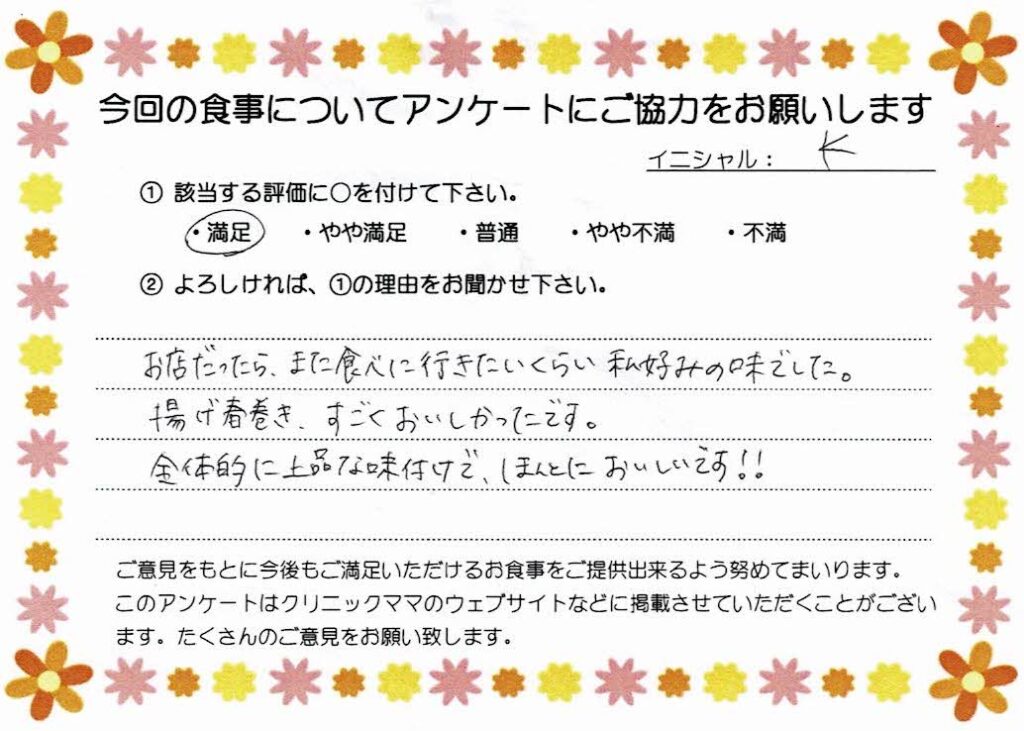 今回の食事についてアンケートにご協力をお願いします
イニシャル： K
① 該当する評価に○を付けて下さい。
・満足 ・やや満足 ・普通 ・やや不満 ・不満
② よろしければ、①の理由をお聞かせ下さい。
お店だったら、また食べに行きたいくらい私好みの味でした。
揚げ春巻き、すごくおいしかったです。
全体的に上品な味付けで、ほんとにおいしいです!!
ご意見をもとに今後もご満足いただけるお食事をご提供出来るよう努めてまいります。
このアンケートはクリニックママのウェブサイトなどに掲載させていただくことがござい
ます。たくさんのご意見をお願い致します。